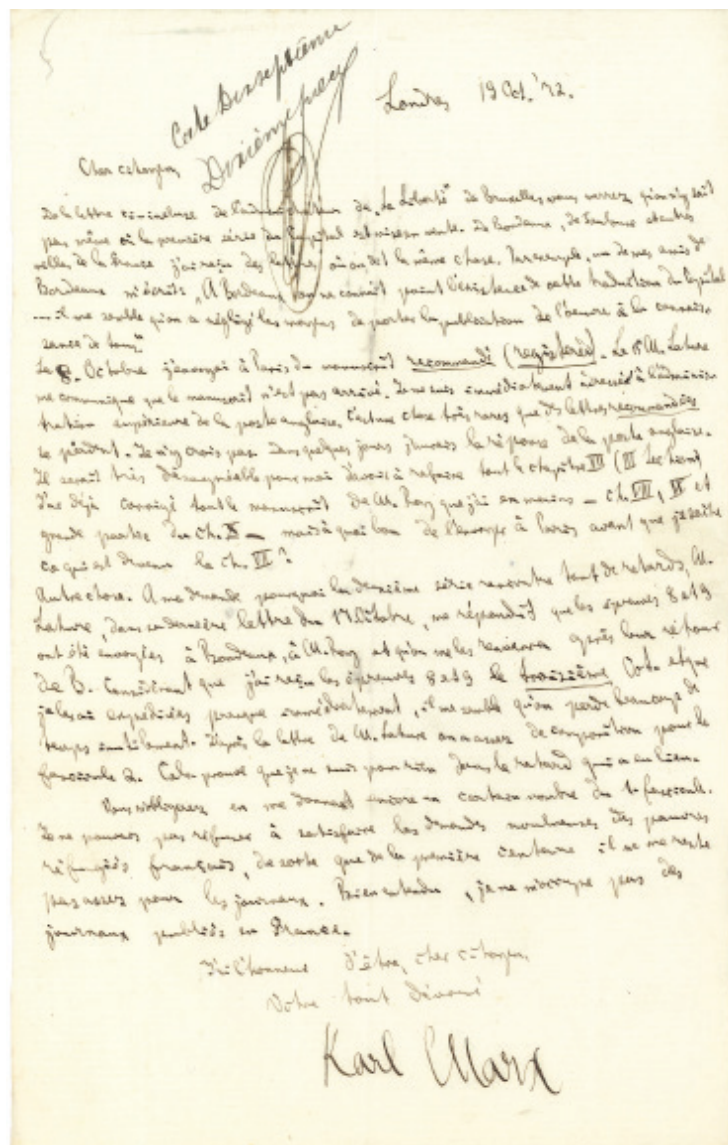 Cote Dixseptième
Dixième pièce
Londres 19 Oct. '72.
Cher citoyen,
De la lettre ci-incluse de l'administrateur de „La Liberté" de Bruxelles vous verrez qu'on n'y sait
pas même où la première série du Capital est mise en vente. De Bordeaux, de Toulouse et autres
villes de la France j'ai reçu des lettres où on dit la même chose. Par exemple, un de mes amis de
Bordeaux m'écrit: „A Bordeaux on ne connaît point l'existence de cette traduction du Capital
---- il me semble qu'on a négligé les moyens de porter la publication de l'oeuvre à la connais-
sance de tous."
Le 8. Octobre j'envoyai à Paris du manuscrit recommandé (registered). Le 15 M. Lahure
me communique que le manuscrit n'est pas arrivé. Je me suis immédiatement adressé à l'adminis-
tration supérieure de la poste anglaise. C'est une chose très rare que des lettres recommandées
se perdent. Je n'y crois pas. Dans quelques jours j'aurai la réponse de la poste anglaise.
Il serait très désagréable pour moi d'avoir à refaire tout le chapitre VII (III Section)
J'ai déjà corrigé tout le manuscrit de M. Roy que j'ai en mains — ch. VIII, IX et
grande partie du ch. X — mais à quoi bon de l'envoyer à Paris avant que je sache
ce qui est devenu le ch. VII?
Autre chose. A ma demande pourquoi la deuxième série rencontre tant de retards, M.
Lahure, dans sa dernière lettre du 17 Octobre, me répondit que les épreuves 8 et 9
ont été envoyées à Bordeaux, à M. Roy et qu'on me les renverra après leur retour
de B. Considérant que j'ai reçu les épreuves 8 et 9 le troisième Oct. et que
je les ai expédiées presque immédiatement, il me semble qu'on perde beaucoup de
temps inutilement. D'après la lettre de M. Lahure on a assez de composition pour le
fascicule 2. Cela prouve que je ne suis pour rien dans le retard qui a eu lieu.
Vous m'obligerez en me donnant encore un certain nombre du 1er fascicule.
Je ne pouvais pas refuser à satisfaire les demandes nombreuses des pauvres
réfugiés français, de sorte que de la première centaine il ne me reste
pas assez pour les journaux. Bien entendu, je ne m'occupe pas des
journaux publiés en France.
J'ai l'honneur d'être, cher citoyen,
Votre tout dévoué
Karl Marx